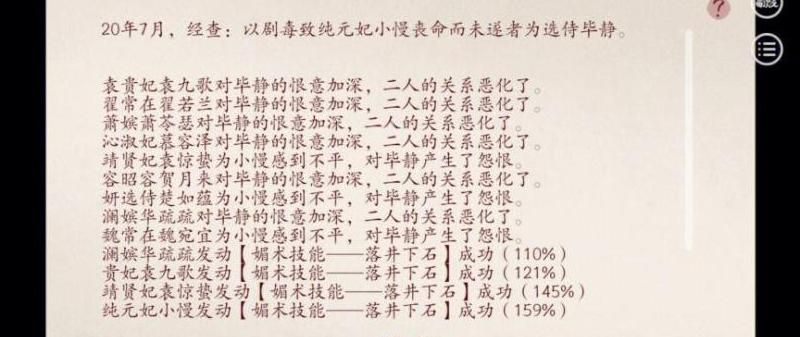 20年7月，经查：以剧毒致纯元妃小慢丧命而未遂者为选侍毕静。
袁贵妃袁九歌对毕静的恨意加深，二人的关系恶化了。
翟常在翟若兰对毕静的恨意加深，二人的关系恶化了。
萧嫔萧苓瑟对毕静的恨意加深，二人的关系恶化了。
沁淑妃慕容泽对毕静的恨意加深，二人的关系恶化了。
靖贤妃袁惊蛰为小慢感到不平，对毕静产生了怨恨。
容昭容贺月来对毕静的恨意加深，二人的关系恶化了。
妍选侍楚如蕴为小慢感到不平，对毕静产生了怨恨。
澜嫔华疏疏对毕静的恨意加深，二人的关系恶化了。
魏常在魏宛宜为小慢感到不平，对毕静产生了怨恨。
澜嫔华疏疏发动【媚术技能——落井下石】成功（110%）
贵妃袁九歌发动【媚术技能——落井下石】成功（121%）
靖贤妃袁惊蛰发动【媚术技能——落井下石】成功（145%）
纯元妃小慢发动【媚术技能——落井下石】成功（159%）
?